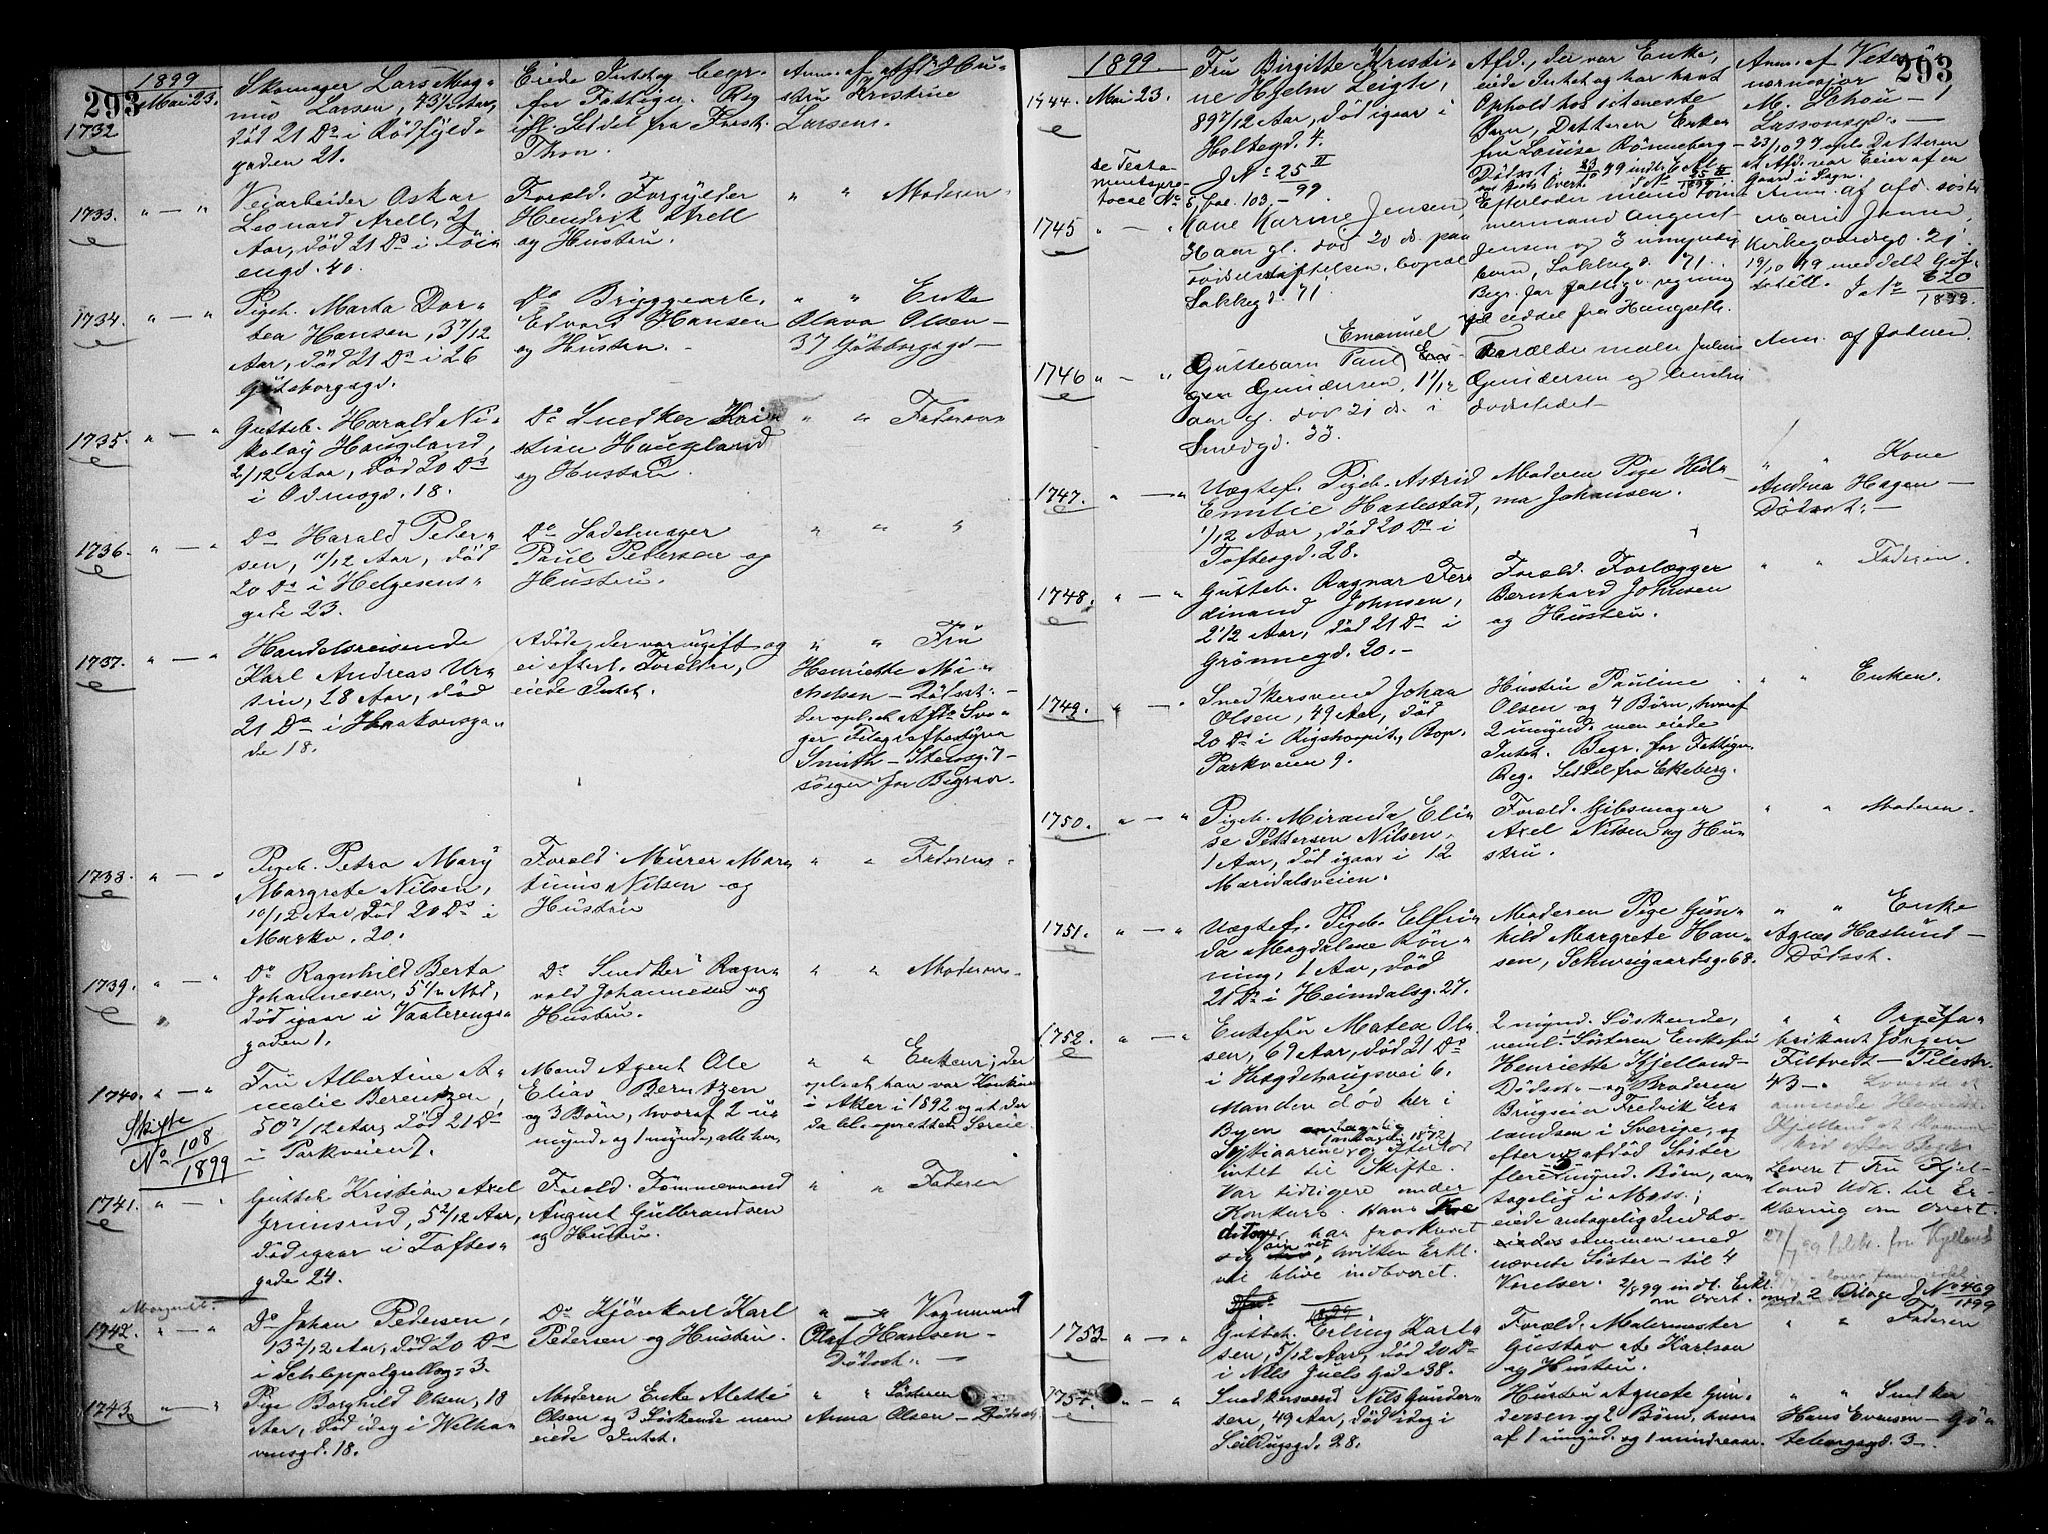 293
1899
Mai 23.
1732
Skomager Lars Mag-
nus Larsen, 43 Aar,
död 21 Ds i Rödfyld-
gaden 21.
Eiede Intet og begr.
for Fattigv. Reg
ifl. Seddel fra Forst.
Thon.
Anm. af afdś Hu-
stru Kristine
Larsen.
1733. " — "
Veiarbeider Oskar
Leonard Arell, 21
Aar, död 21 Ds i Töi-
engd. 40.
Foræld. Forgylder
Hendrik Arell
og Hustru.
" " Moderen
1734. " — "
Pigeb. Marta Dor-
tea Hansen, 3 7/12
Aar, död 21 Ds i 26
Göteborgsgd.
Do Bryggearb.
Edvard Hansen
og Hustru.
" " Enke
Olava Olsen —
37 Götborgsgd —
1735. " — "
Gutteb. Harald Ni-
kolay Haugland,
2/12 Aar, död 20 Ds
i Odinsgd. 18.
Do Snedker Kri-
stian Haugland
og Hustru
" " Faderen
1736. " — "
Do Harald Peder-
sen, 11/12 Aar, död
20 Ds i Helgesens-
gade 23.
Do Sadelmager
Paul Pedersen og
Hustru.
" " "
1737. " — "
Handelsreisende
Karl Andreas Ur-
sin, 28 Aar, död
21 Ds i Haakonsga-
de 18.
Afdöde, der var ugift og
ei efterl. Forældre,
eiede Intet.
" " Fru
Henriette Mi-
chelsen — Dödsst. —
der opl. at Afds Svo-
ger Telegrafbestyrer
Smith — Stensg. 7
sörger for Begrav.
1738. " — "
Pigeb. Petra Mary
Margrete Nilsen,
10/12 Aar, död 20 Ds i
Markv. 20.
Foræld. Murer Mar-
tinius Nilsen og
Hustru
" " Faderen
1739. " — "
Do Ragnhild Berta
Johannesen, 5 1/2 Md,
död igaar i Vaalerengs-
gaden 1.
Do Snedker Ragn-
vald Johannesen og
Hustru.
" " Moderen
1740. " — "
Skifte
No 108
1899
Fru Albertine A-
malie Berentzen,
50 7/12 Aar, död 21 Ds
i Parkveien 7.
Mand Agent Ole
Elias Berntzen
og 3 Börn, hvoraf 2 u-
mynd. og 1 mynd., alle her.
" " Enkem; der
opl. at han var Konkurs
i Aker i 1892 og at der
da blev oprettet Særeie.
1741. " — "
Gutteb. Kristian Axel
Grimsrud, 5 2/12 Aar,
död igaar i Toftes-
gade 24.
Foræld. Tömmermand
August Gulbrandsen
og Hustru.
" " Faderen
1742. " — "
Do Johan Pedersen,
13 2/12 Aar, död 20 Ds
i Schleppegrellsg. 3.
Do Kjörekarl Karl
Pedersen og Hustru.
" " Vognmand
Olaf Hansen —
Dödsst. —
1743. " — "
Pige Borghild Olsen, 18
Aar, död idag i Wilha-
vensgd. 18.
Moderen Enke Alette
Olsen og 3 Söskende men
eiede Intet.
" " Sösteren
Anna Olsen — Dödsst.
293
1899
1744. Mai 23.
Fru Birgitte Kristi-
ne Hjelm Leigh,
89 7/12 Aar, död igaar i
Holtegd. 4.
J No 25 II
99.
se Testa-
mentspro-
tocol No
5, fol. 103.
Afd., der var Enke,
eiede Intet og har havt
Ophold hos sit eneste
Barn, Datteren Enke-
fru Louise Rönneberg —
Dödsst.
Anm. af Vete-
rinærmajor
M. Schou — 1
Lassonsgd. —
23/10 99 opl. Datteren
at Afd. var Eier af en
Gaard i Sogn.
1745 " — "
Kone Karine Jensen,
Aar gl. död 20 ds. paa
Födselsstiftelsen, bopæl
Lakkegd. 71.
Efterlader mand töm-
mermand August
Jensen og 3 umyndige
börn, Lakkegd. 71.
Begr. for fattigv. regning
Anm. af afd. söster
Marie Jensen,
Kirkegaardsgd. 21.
19/10 99 meddelt Skif-
J. No 620
1899.
1746 " — "
Guttebarn Paul Emanuel
Gundersen, 1 1/12
aar gl. död 21 ds. i
Smedgd. 33.
Forældre maler Julius
Gundersen og hustru
dödsstedet.
Anm. af faderen.
1747. " — "
Uægtef. Pigeb. Astrid
Emilie Haslestad,
1/12 Aar, död 20 Ds i
Toftesgd. 28.
Moderen Pige Hil-
ma Johansen.
" " Kone
Andrea Hagen —
Dödsst. —
1748. " — "
Gutteb. Ragnar Fer-
dinand Johnsen,
2/12 Aar, död 21 Ds i
Grönnegd. 20. —
Foræld. Forlægger
Bernhard Johnsen
og Hustru.
" " Faderen.
1749. " — "
Snedkersvend Johan
Olsen, 49 Aar, död
20 Ds i Rigshospit., Bop.
Parkveien 9.
Hustru Pauline
Olsen og 4 Börn, hvoraf
2 umynd. men eiede
Intet. Begr. for Fattigv.
Reg. Seddel fra Ekeberg.
" " Enken.
1750. " — "
Pigeb. Miranda Eli-
se Pettersen Nilsen,
1 Aar, död igaar i 12
Maridalsveien.
Foræld. Gibsmager
Axel Nilsen og Hu-
stru.
" " Moderen.
1751. " — "
Uægtef. Pigeb. Elfri-
da Magdalene Rön-
ning, 1 Aar, död
21 Ds i Heimdalsg. 27.
Moderen Pige Gun-
hild Margrete Han-
sen, Schweigaardsg. 68.
" " Enke
Agnes Haslund —
Dödsst.
1752. " — "
Enkefru Matea Ol-
sen, 67 Aar, död 21 Ds
i Hægdehaugsvei 6.
Manden död her i
Byen antagelig
i Syttiaarene, og efterlod
intet til Skifte.
Var tidligere under
Konkurs.
har fraskrevet
sig, hvilken Erkl.
vil blive indleveret.
2 mynd. Söskende,
neml. Sösteren Enkefru
Henriette Kjelland —
Dödsst. — og Broderen
Brugseier Fredrik Er-
landsen i Sverige, og
efter en afdöd Söster
flere mynd. Börn, an-
tagelig i Moss;
eiede antagelig Indbo-
sammen med
nævnte Söster — til 4
Værelser. 2/8 99 indl. Erkl.
om Overt. med 2 Bilage J. No 469
1899
" " Orgelfa-
brikant Jörgen
Filtvedt — Pilestr.
43 —
Leveret Fru Kjel-
land Udk. til Er-
klæring om Overt.
1753 " — "
Gutteb. Erling Karl-
sen, 5/12 Aar, död 20 Ds
i Nils Juels Gade 38.
Foræld. Malermester
Gustav af Karlson
og Hustru.
" " Faderen
1754. " — "
Snedkersvend Nils Gunder-
sen, 49 Aar, död idag i
Seildugsgd. 28.
Hustru Agnete Gun-
dersen og 2 Börn, hvor-
af 1 umynd. og 1 mindreaar.
" " Snedker
Hans Evensen — Gö-
teborgsgd. 3 —.